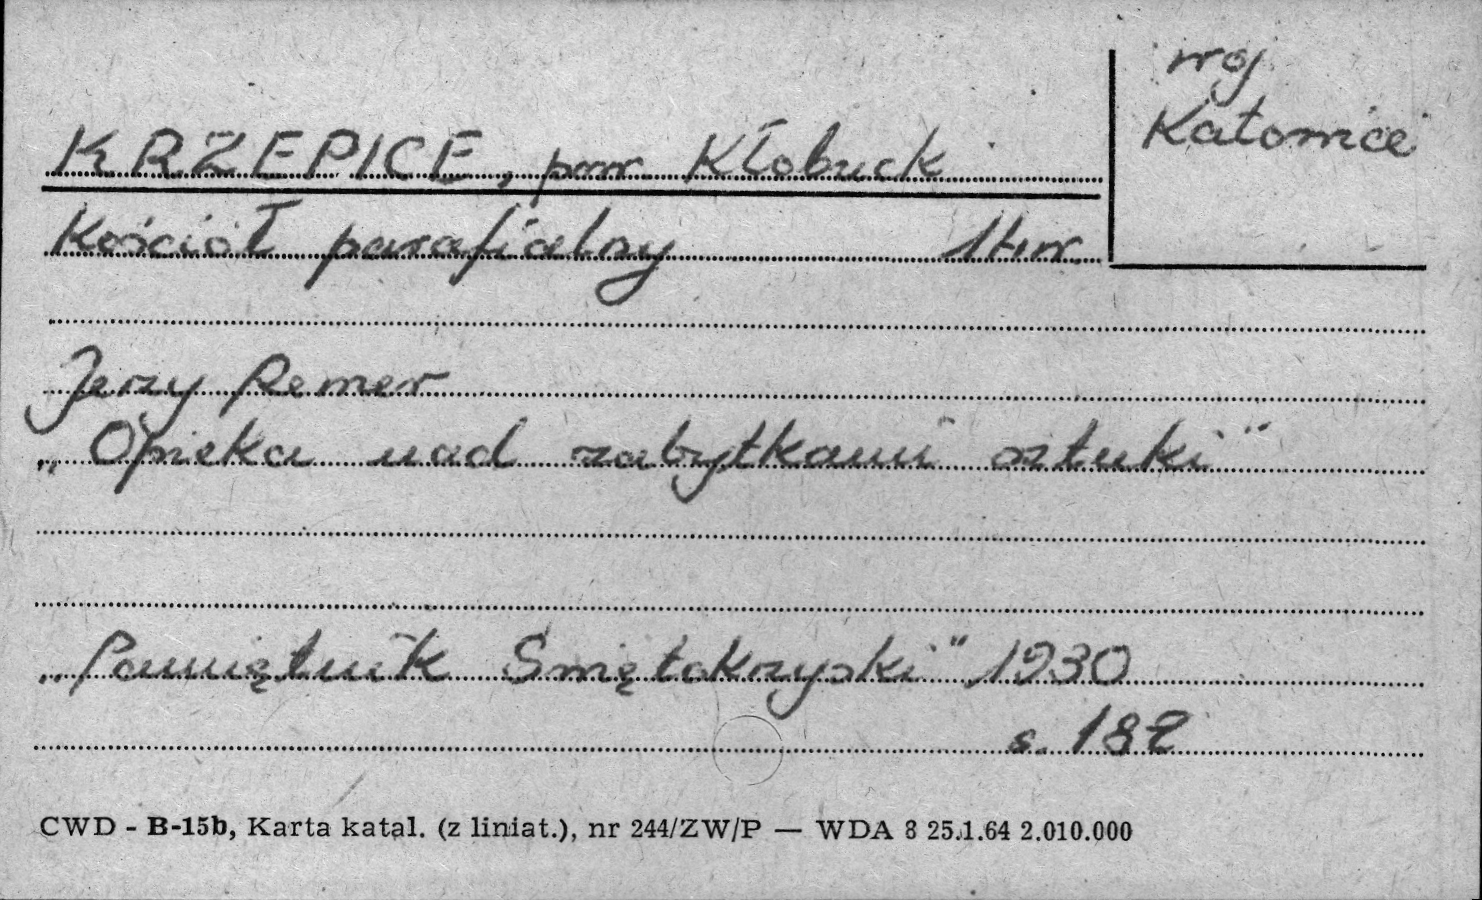 woj
Katowice
KRZEPICE, pow. Kłobuck
Kościół parafialny 14w.
Jerzy Remer
„Opieka nad zabytkami sztuki”
„Pamiętnik Świętokrzyski” 1930
s. 182
CWD - B-15b, Karta katal. (z liniat.), nr 244/ZW/P — WDA 8 25.1.64 2.010.000